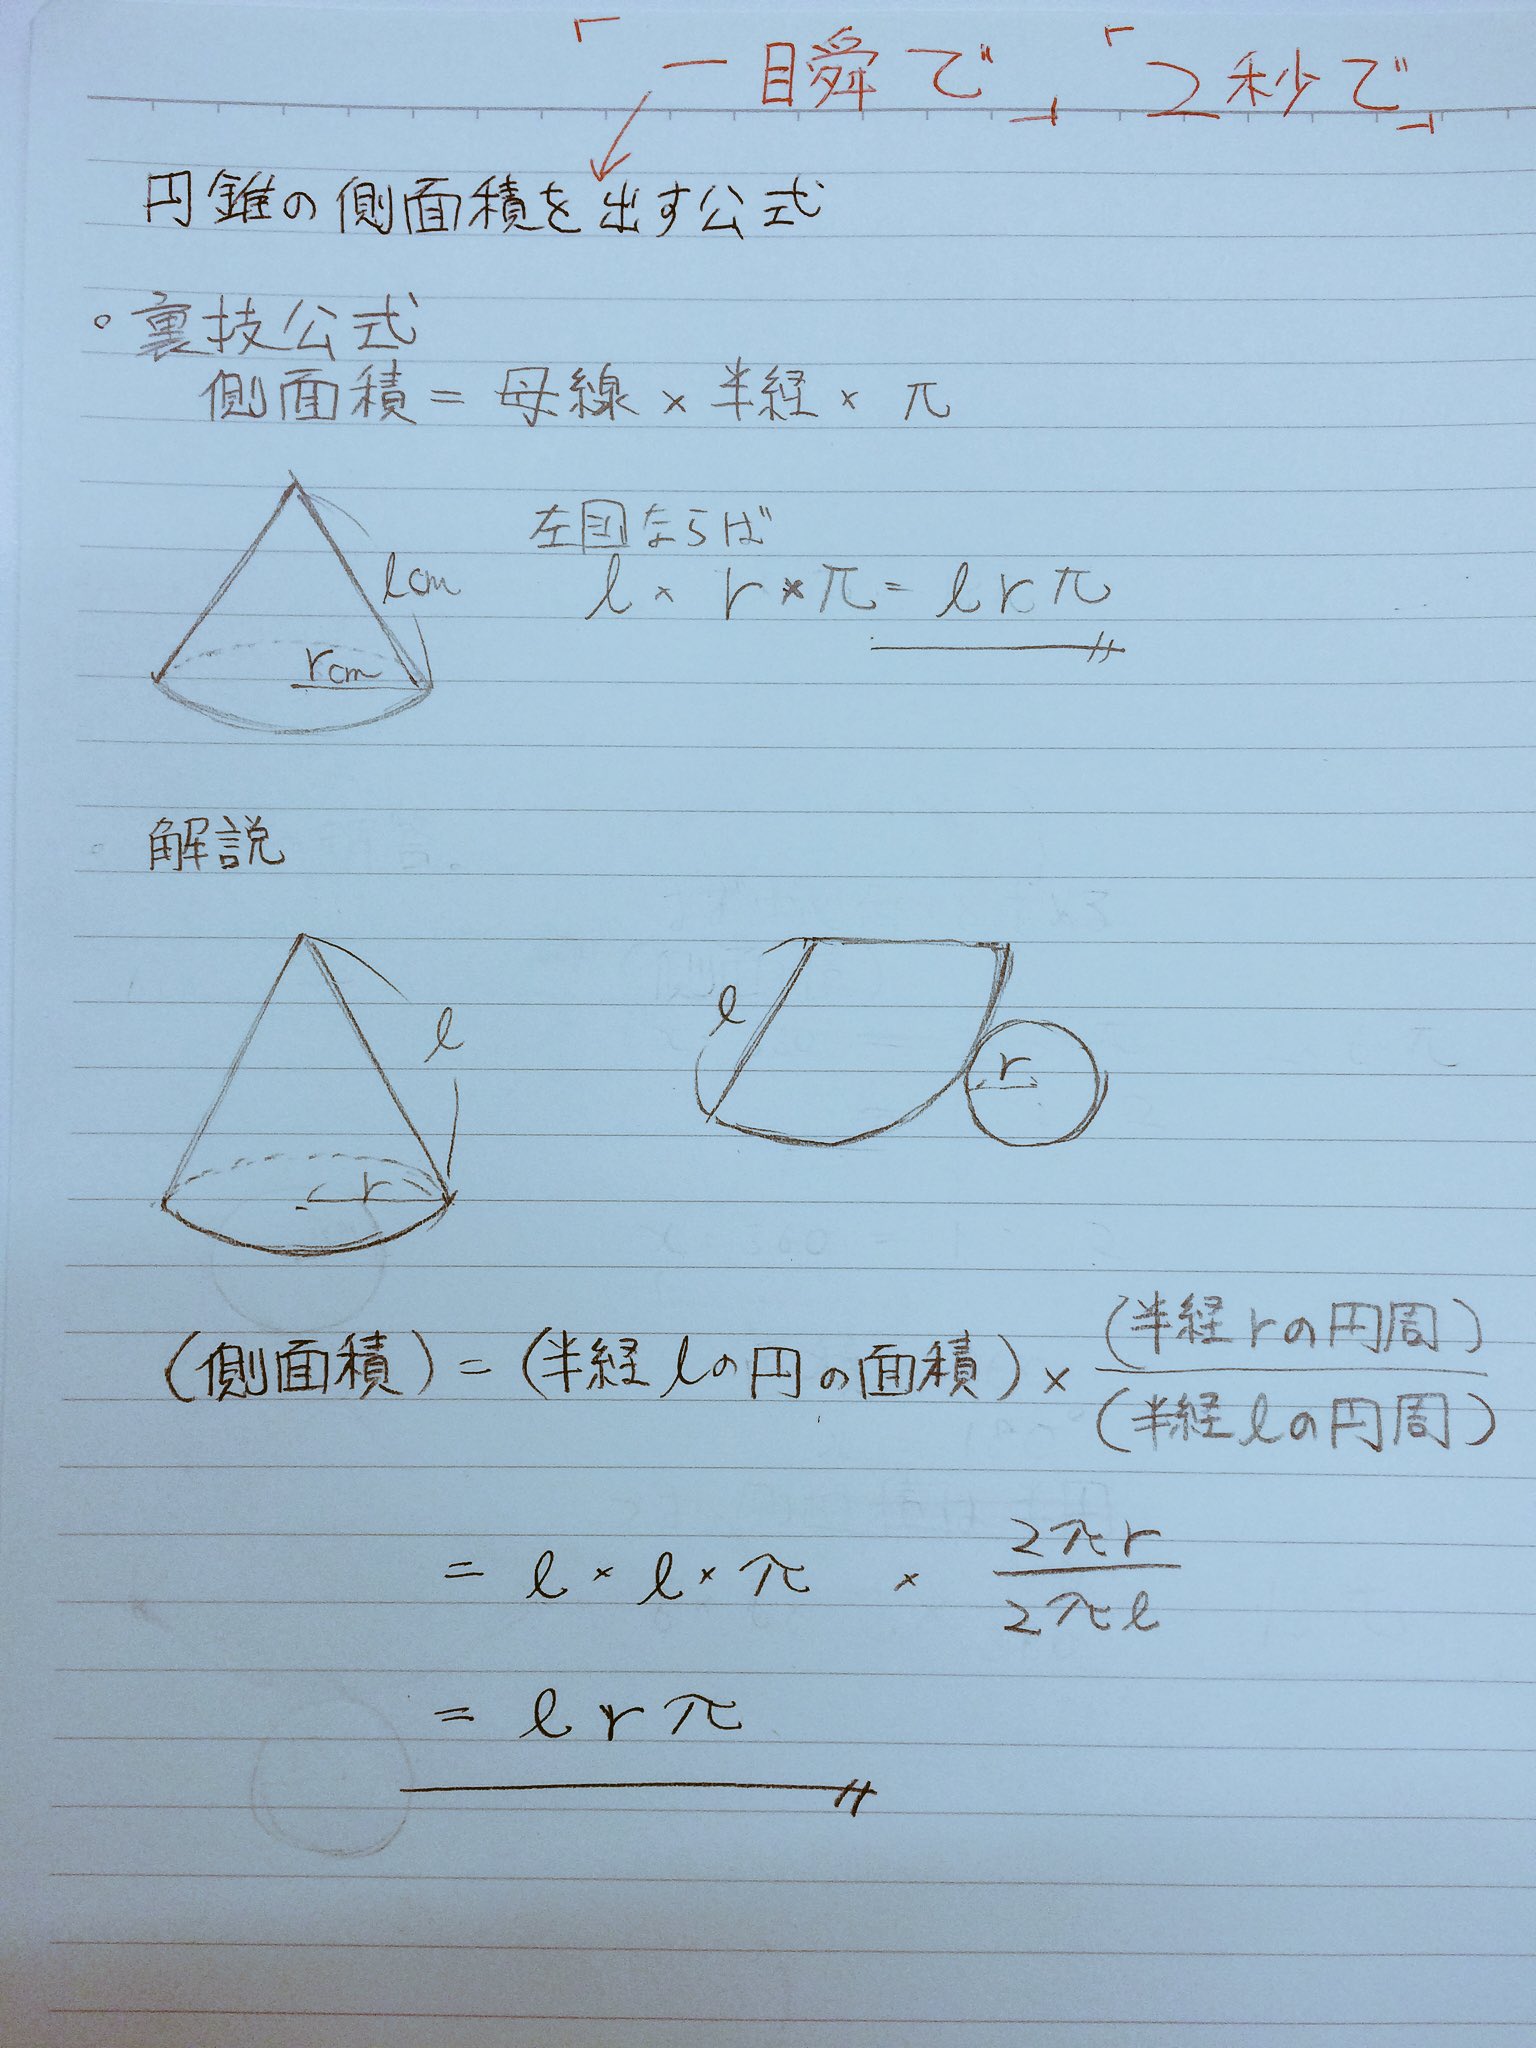 「一瞬で」「2秒で」
円錐の側面積を出す公式
。裏技公式
側面積 = 母線 × 半経 × π
左図ならば
l × r × π = l r π
lcm
rcm
解説
l
r
l
r
(側面積) = (半経lの円の面積) × (半経rの円周)/(半経lの円周)
= l × l × π × 2πr/2πl
= l r π